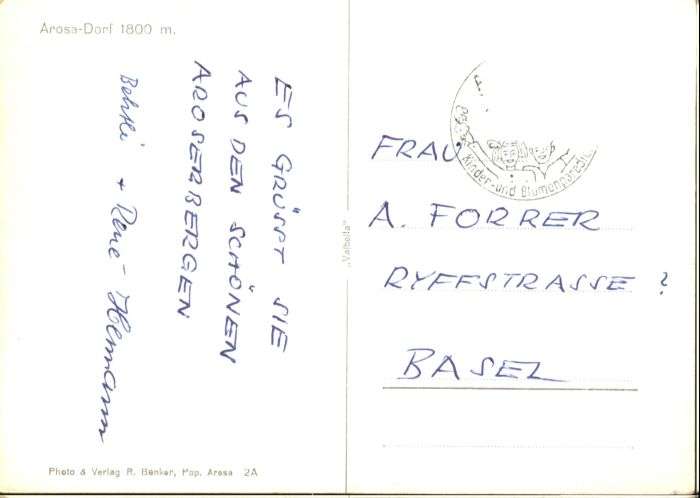 Arosa-Dorf 1800 m.
ES GRÜSST SIE
AUS DEN SCHÖNEN
AROSERBERGEN
+ René
"Valbella"
Kinder- und Blumenparadies
FRAU
A. FORRER
RYFFSTRASSE ?
BASEL
Photo & Verlag R. Benker, Pap. Arosa 2A